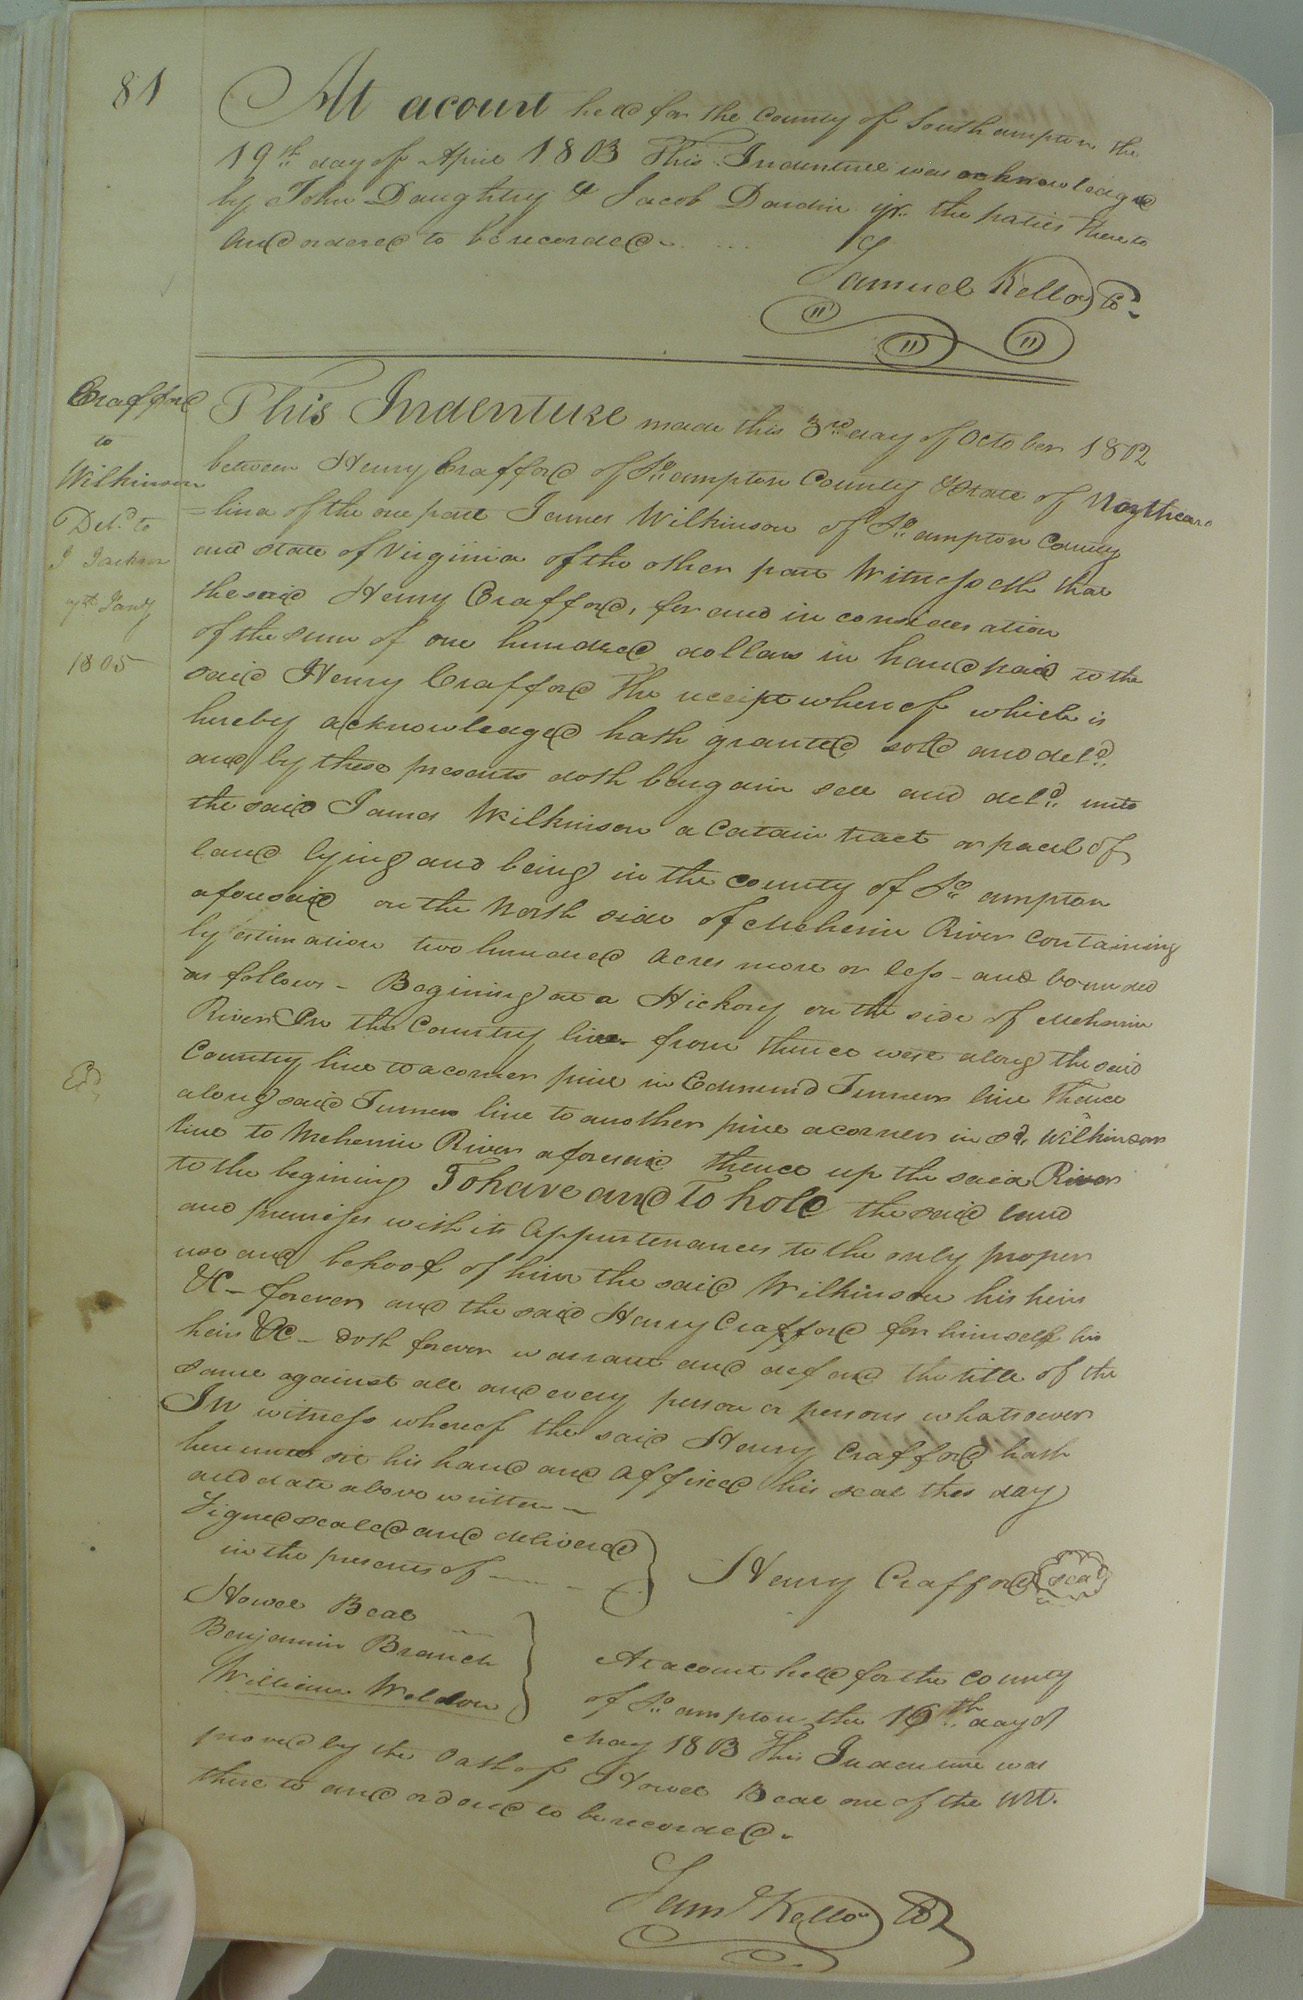 81
At a court held for the County of Southampton the
19th day of April 1803 This Indenture was acknowledged
by John Daughtry & Jacob Dardin jr. the paties thereto
and ordered to be recorded
Samuel Kello Cs.
Crafford
to
Wilkinson
Deld. to
J Jackson
7th Jany
1805
Exd.
This Indenture made this 3rd day of October 1802
between Henry Crafford of So. ampton County & State of Northcaro
=lina of the one part James Wilkinson of So. ampton County
and State of Virginia of the other part Witnesseth that
the said Henry Crafford, for and in consideration
of the sum of one hundred dollars in hand paid to the
said Henry Crafford The receipt whereof which is
hereby acknowledged hath granted sold and deld.
and by these presents doth bargain sell and deld. unto
the said James Wilkinson a Certain tract or parcel of
land lying and being in the county of So. ampton
aforesaid on the North side of Meherin River containing
by estimation two hundred acres more or less - and bounded
as follows - Begining at a Hickory on the side of Meherin
River In the Country line from thence west along the said
Country line to a corner pine in Edmund Turners line Thence
along said Turners line to another pine a corner in sd. Wilkinson
line to Meherin River aforesaid thence up the said River
to the begining To have and To hold the said land
and premises with its Appurtenances to the only proper
use and behoof of him the said Wilkinson his heirs
&C - forever and the said Henry Crafford for himself his
heirs &C - doth forever warrant and defend the title of the
same against all and every person or persons whatsoever
In witness whereof the said Henry Crafford hath
hereunto set his hand and affixed his seal this day
and date above written -
Signed sealed and delivered
in the presents of
Henry Crafford seal
Howel Beal
Benjamin Branch
William Weldon
At a court held for the County
of So. ampton the 16th. day of
May 1803 This Indenture was
proved by the Oath of Howel Beal one of the Wt.
there to and ordered to be recorded.
Saml Kello Cs